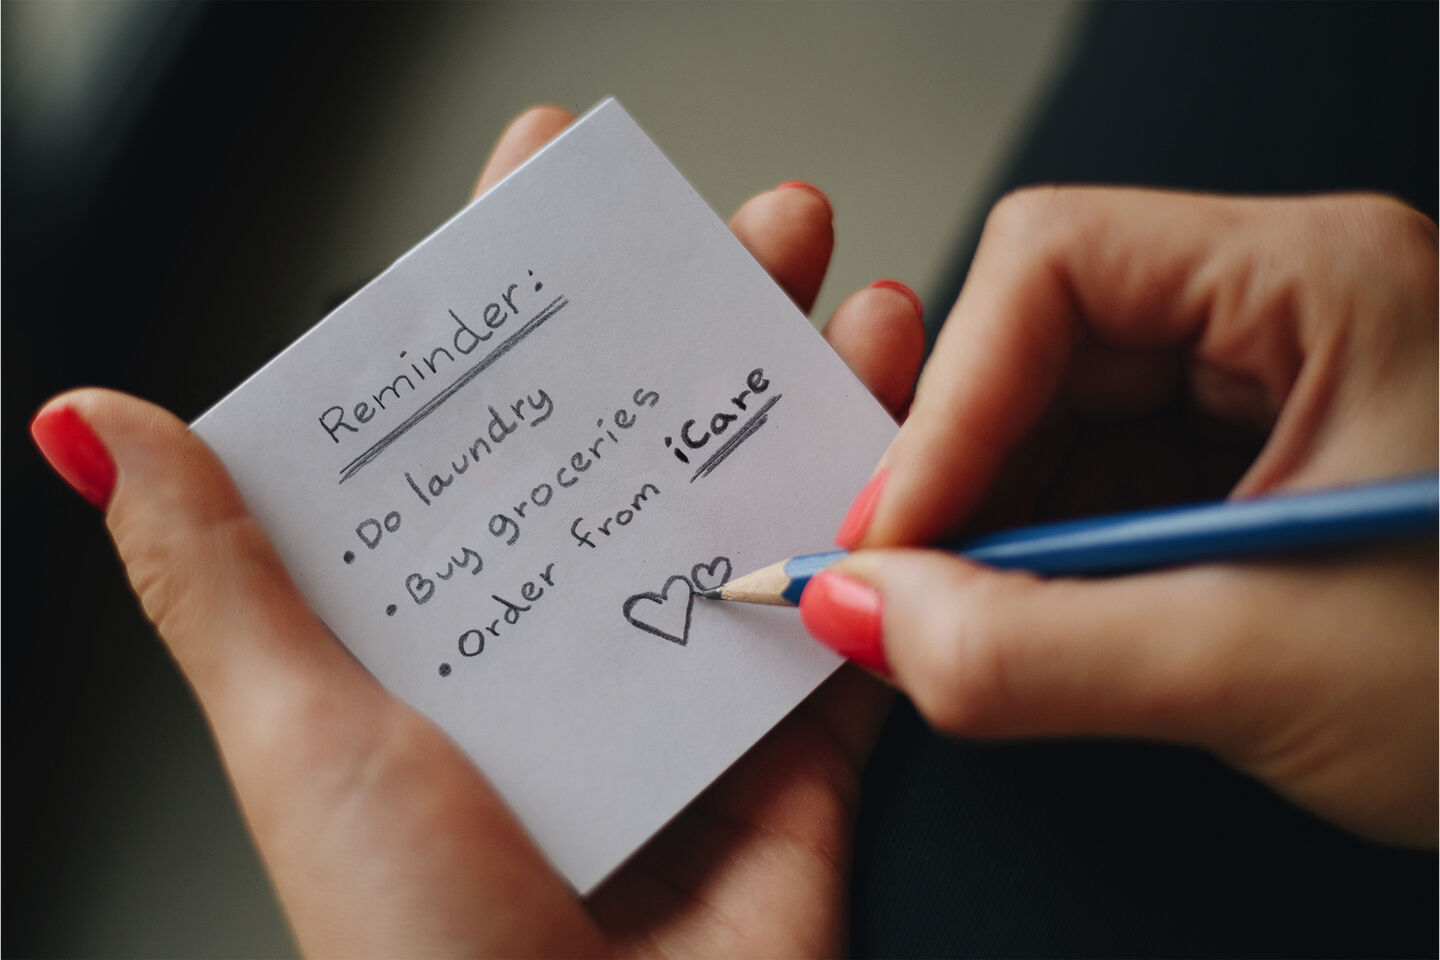 Reminder:
• Do laundry
• Buy groceries
• Order from iCare